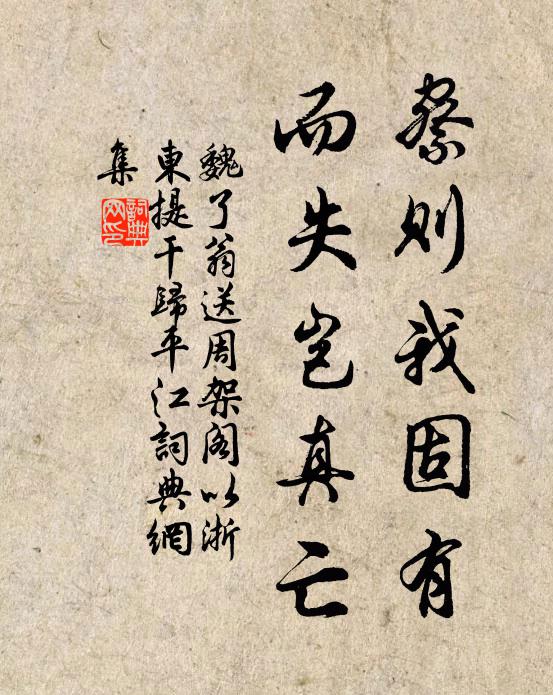 察則我固有
而失岂真亡
魏了翁送周架阁以浙
東提干歸平江詞典網
集
詞典
网印